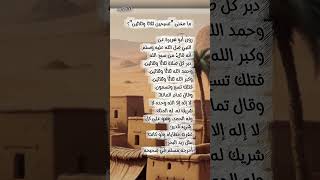 ما معنى "تسبحين ثلاثًا وثلاثين"؟
روى أبو هريرة عن
النبي صلى الله عليه وسلم
أنه قال: من سبح الله
دبر كل صلاة ثلاثًا وثلاثين
وحمد الله ثلاثًا وثلاثين
وكبر الله ثلاثًا وثلاثين
فتلك تسع وتسعون
وقال تمام المائة
لا إله إلا الله وحده لا
شريك له، له الملك
وله الحمد، وهو على كل
شيء قدير
غفرت خطاياه ولو كانت
مثل زبد البحر
أخرجه مسلم في صحيحه
دبر كل
وحمد الله ثلاثًا
وكبر الله
فتلك تسع
وقال تمام
لا إله إلا
شريك له